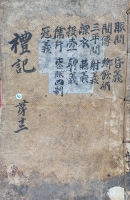 服問 昏義
間傳 鄉飮酒
三年問 射義
深衣 燕義
投壺 聘義
儒行 喪服四制
冠義
禮記